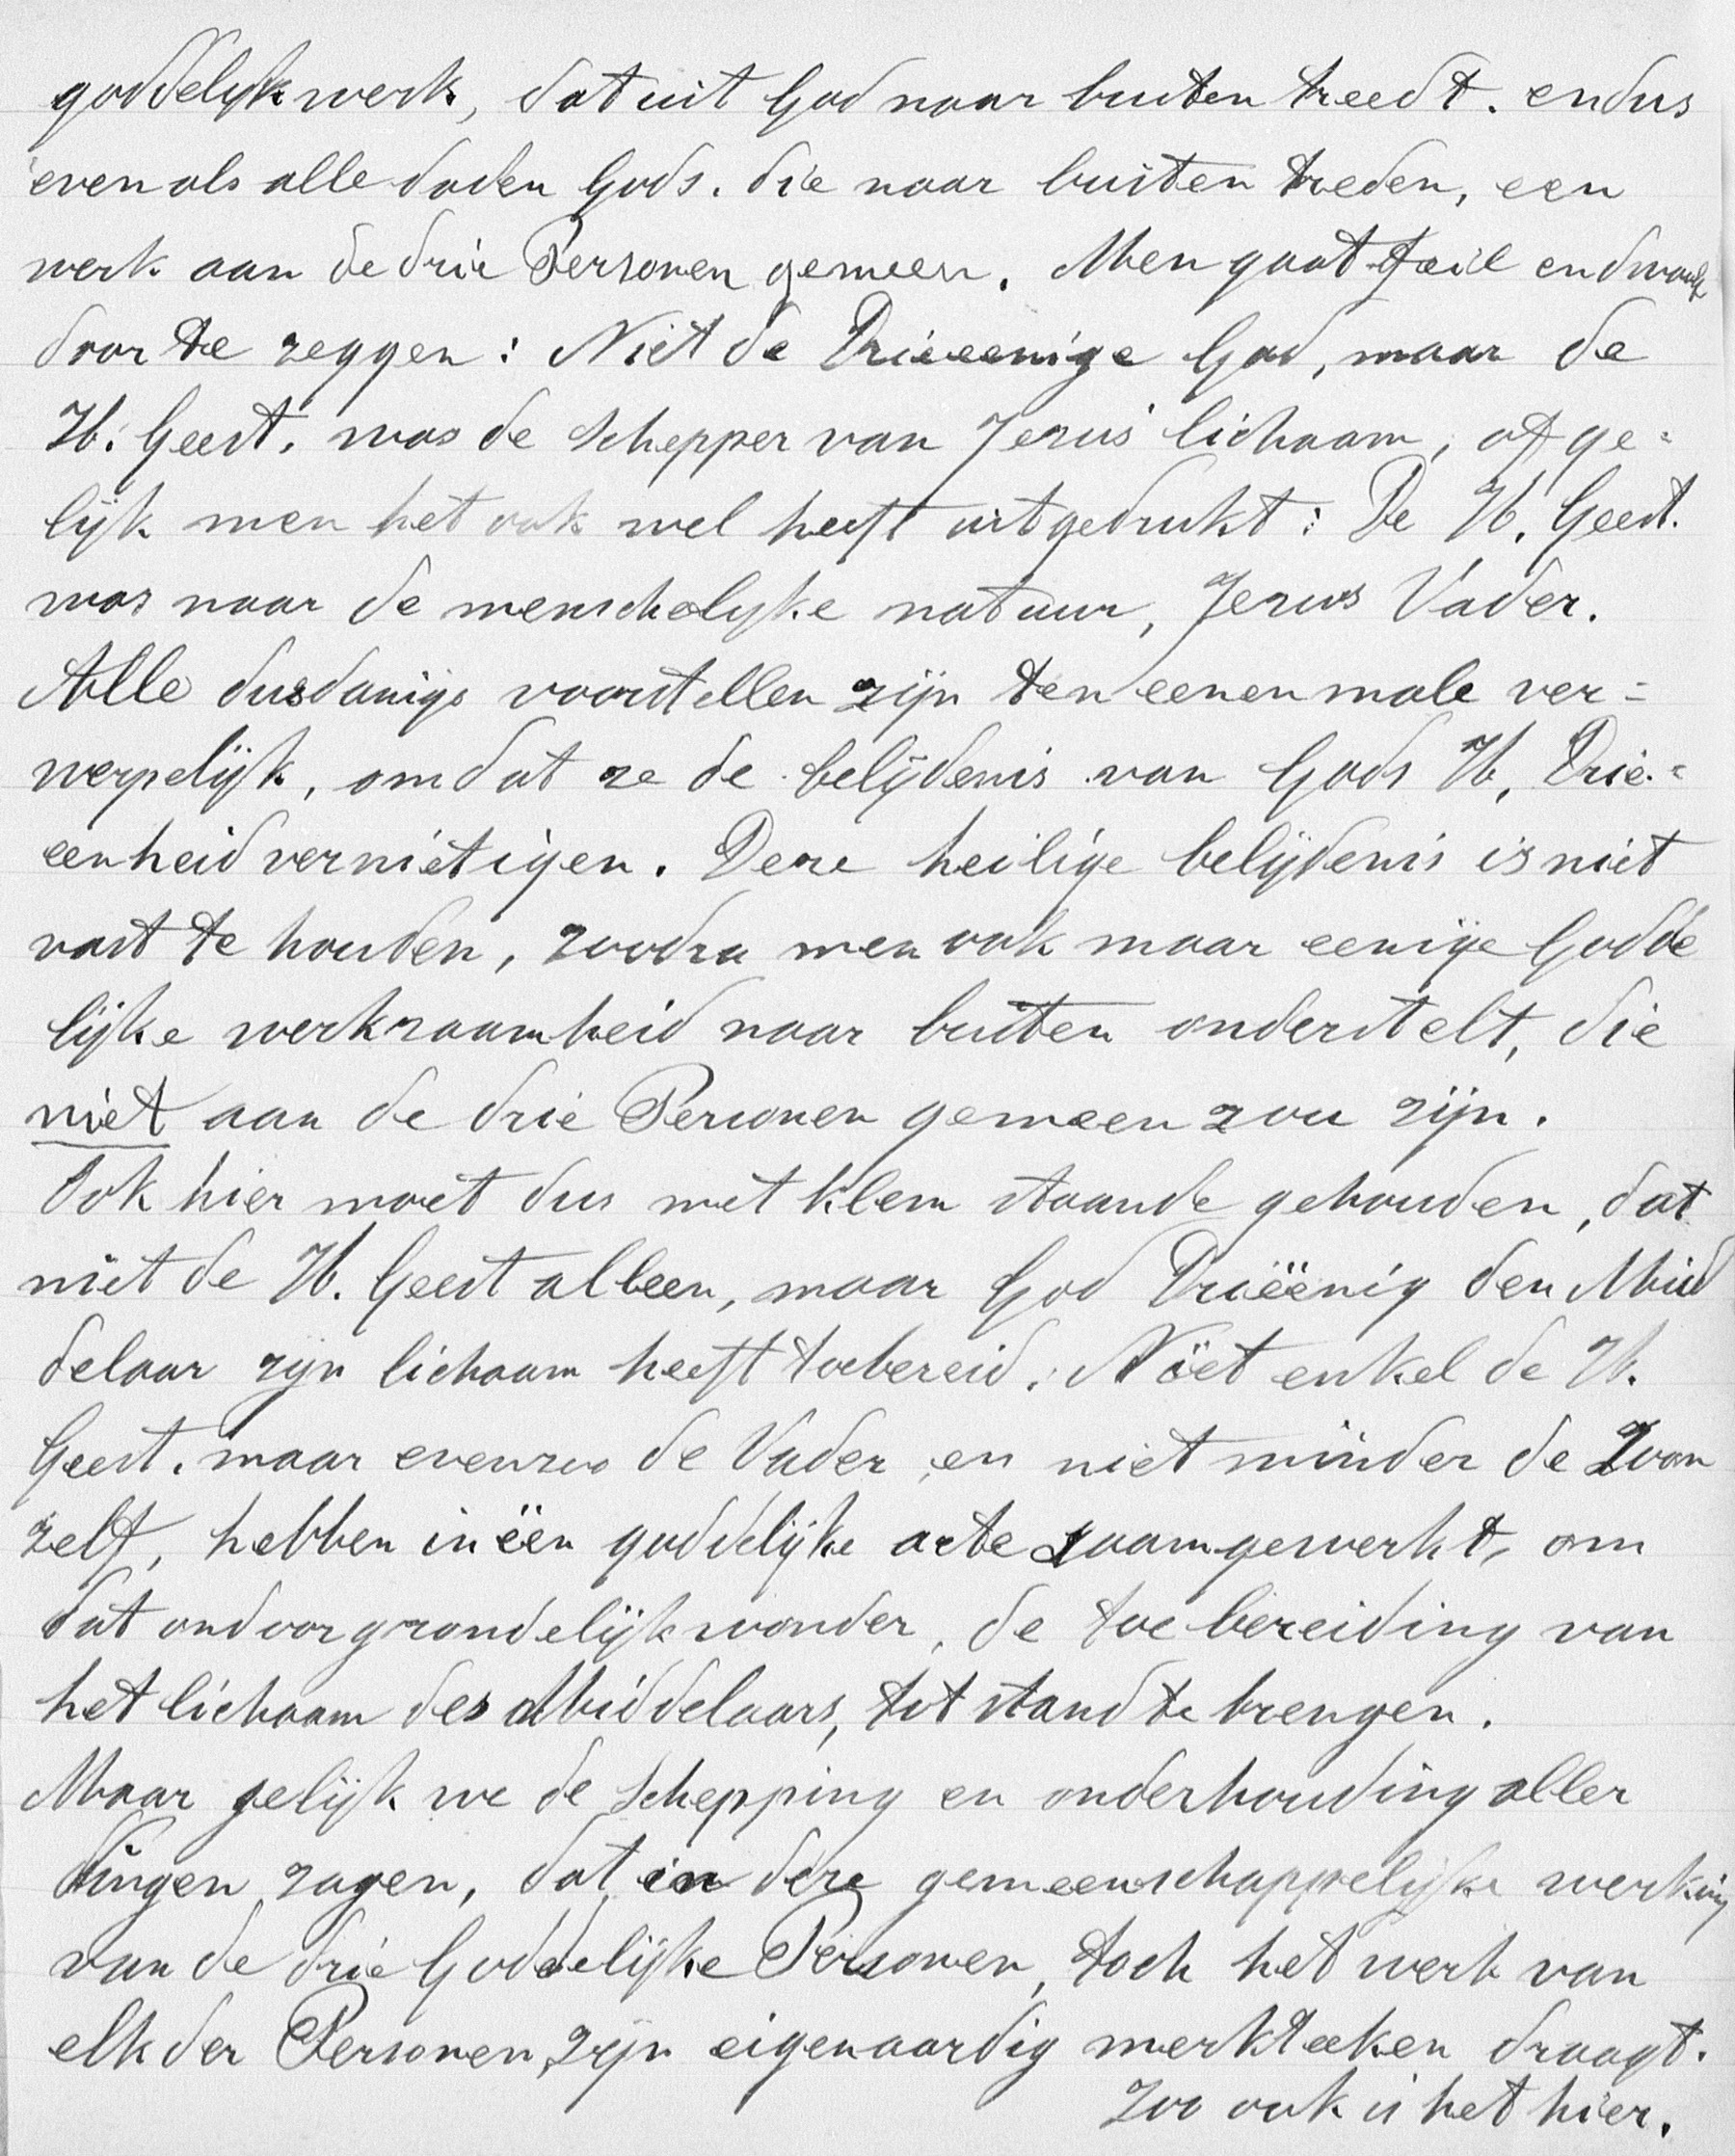 goddelijk werk, dat uit God naar buiten treedt. en dus
even als alle daden Gods. die naar buiten treden, een
werk aan de drie Personen gemeen. Men gaat feil en dwaalt
door te zeggen: Niet de Drieeenige God, maar de
H. Geest, was de Schepper van Jezus' lichaam, of ge=
lijk men het ook wel heeft uitgedrukt: De H. Geest.
was naar de menschelijke natuur, Jezus Vader.
Alle dusdanige voorstellen zijn ten eenen male ver=
werpelijk, omdat ze de belijdenis van Gods H. Drie=
eenheid vernietigen. Deze heilige belijdenis is niet
vast te houden, zoodra men ook maar eenige Godde
lijke werkzaamheid naar buiten onderstelt, die
niet aan de drie Personen gemeen zou zijn.
Ook hier moet dus met klem staande gehouden, dat
niet de H. Geest alleen, maar God Drieëënig den Mid
delaar zijn lichaam heeft toebereid. Niet enkel de H.
Geest. maar evenzoo de Vader en niet minder de Zoon
zelf, hebben in één goddelijke acte zaamgewerkt, om
dat ondoorgrondelijk wonder, de toe bereiding van
het lichaam des Middelaars, tot stand te brengen.
Maar gelijk we de Schepping en onderhouding aller
dingen zagen, dat in deze gemeenschappelijke werking
van de drie Goddelijke Personen, toch het werk van
elk der Personen, zijn eigenaardig merkteeken draagt.
Zoo ook is het hier.